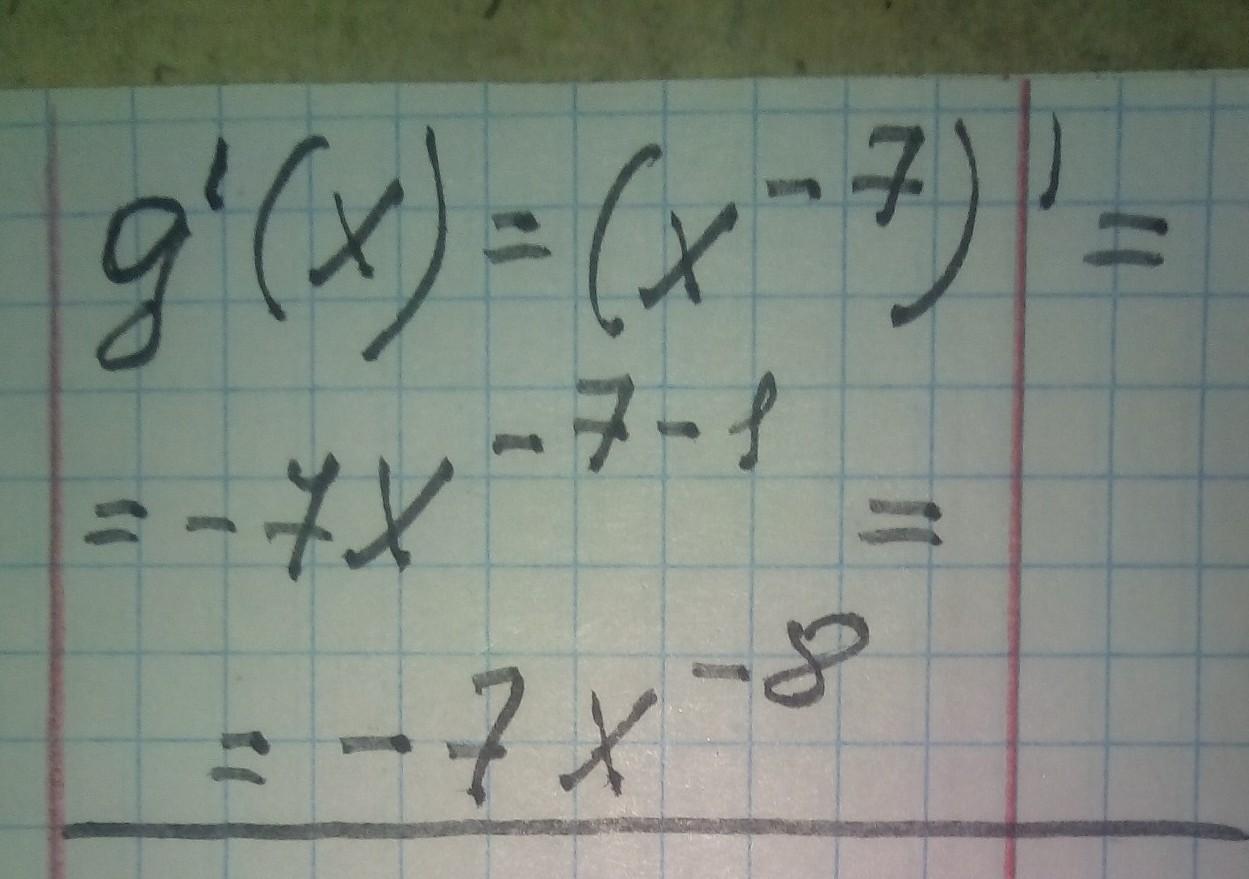 g'(x) = (x⁻⁷)' =
= -7x⁻⁷⁻¹ =
= -7x⁻⁸